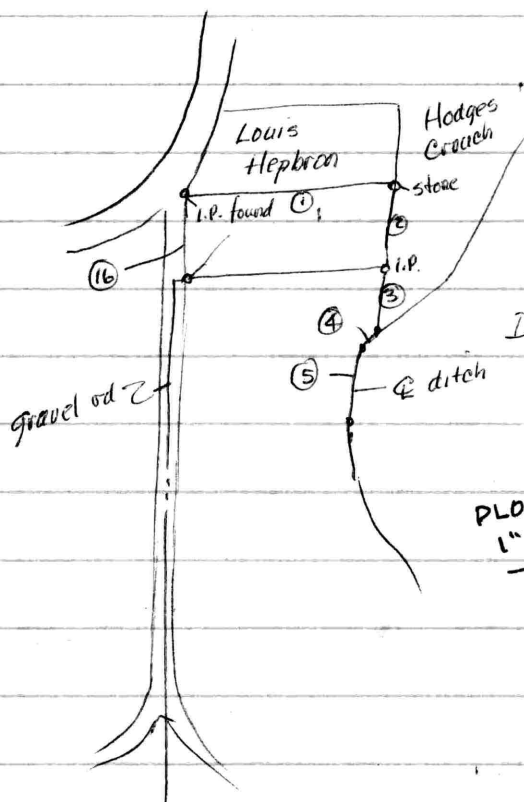 Louis
Hepbron
Hodges
Crouch
stone
i.p. found ①
②
⑯
i.p.
③
④
⑤
℄ ditch
gravel rd
PLO
1"